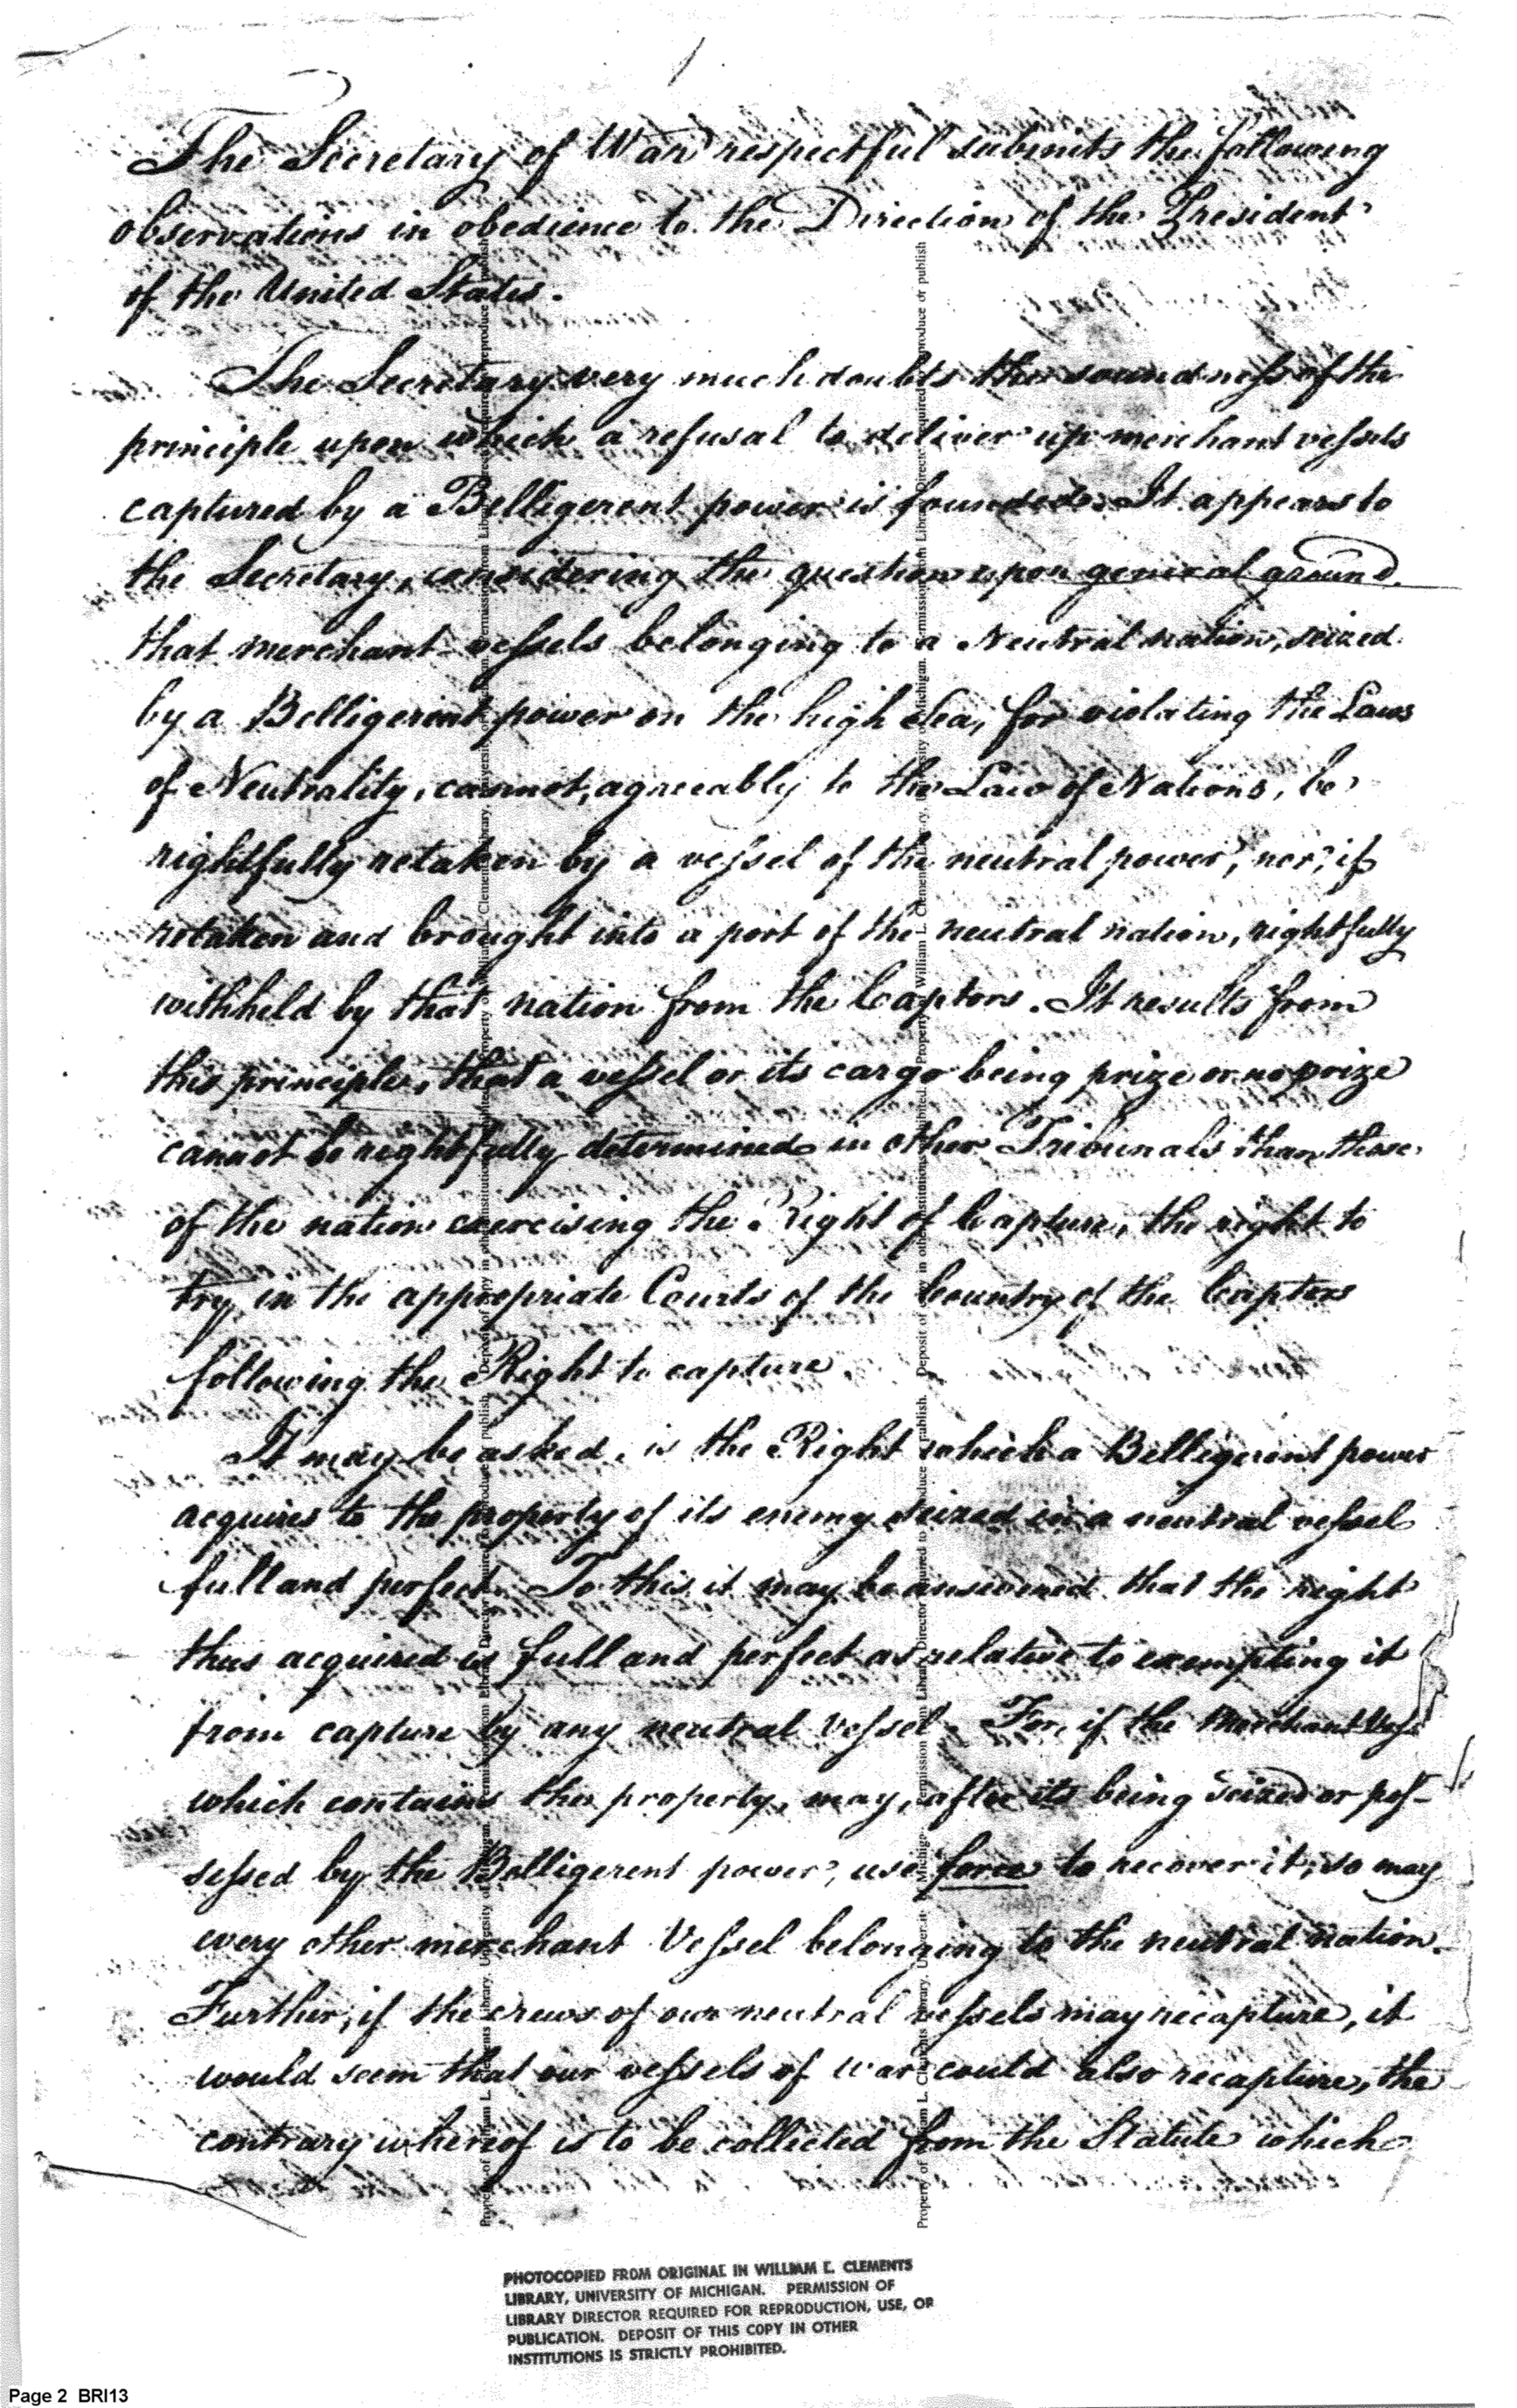 The Secretary of War respectful submits the following
observations in obedience to the Direction of the President
of the United States.
The Secretary very much doubts the soundness of the
principle upon which a refusal to deliver up merchant vessels
captured by a Belligerent power is founded. It appears to
the Secretary, considering the question upon general ground
that merchant vessels belonging to a Neutral nation, seized
by a Belligerent power on the high Sea, for violating the Laws
of Neutrality, cannot, agreeably to the Law of Nations, be
rightfully retaken by a vessel of the neutral power, nor, if
retaken and brought into a port of the neutral nation, rightfully
withheld by that nation from the Captors. It results from
this principle, that a vessel or its cargo being prize or no prize
cannot be rightfully determined in other Tribunals than those
of the nation exercising the Right of Capture, the right to
try in the appropriate Courts of the Country of the Captors
following the Right to capture.
It may be asked, is the Right which a Belligerent power
acquires to the property of its enemy seized in a neutral vessel
full and perfect. To this it may be answered that the right
thus acquired is full and perfect as relative to exempting it
from capture by any neutral Vessel. For, if the merchant
which contains the property, may, after its being seized or pos-
sessed by the Belligerent power, use force to recover it, so may
every other merchant Vessel belonging to the neutral nation.
Further, if the crews of our neutral vessels may recapture, it
would seem that our vessels of war could also recapture, the
contrary whereof is to be collected from the Statute which
PHOTOCOPIED FROM ORIGINAL IN WILLIAM L. CLEMENTS
LIBRARY, UNIVERSITY OF MICHIGAN. PERMISSION OF
LIBRARY DIRECTOR REQUIRED FOR REPRODUCTION, USE, OR
PUBLICATION. DEPOSIT OF THIS COPY IN OTHER
INSTITUTIONS IS STRICTLY PROHIBITED.
Page 2 BRI13